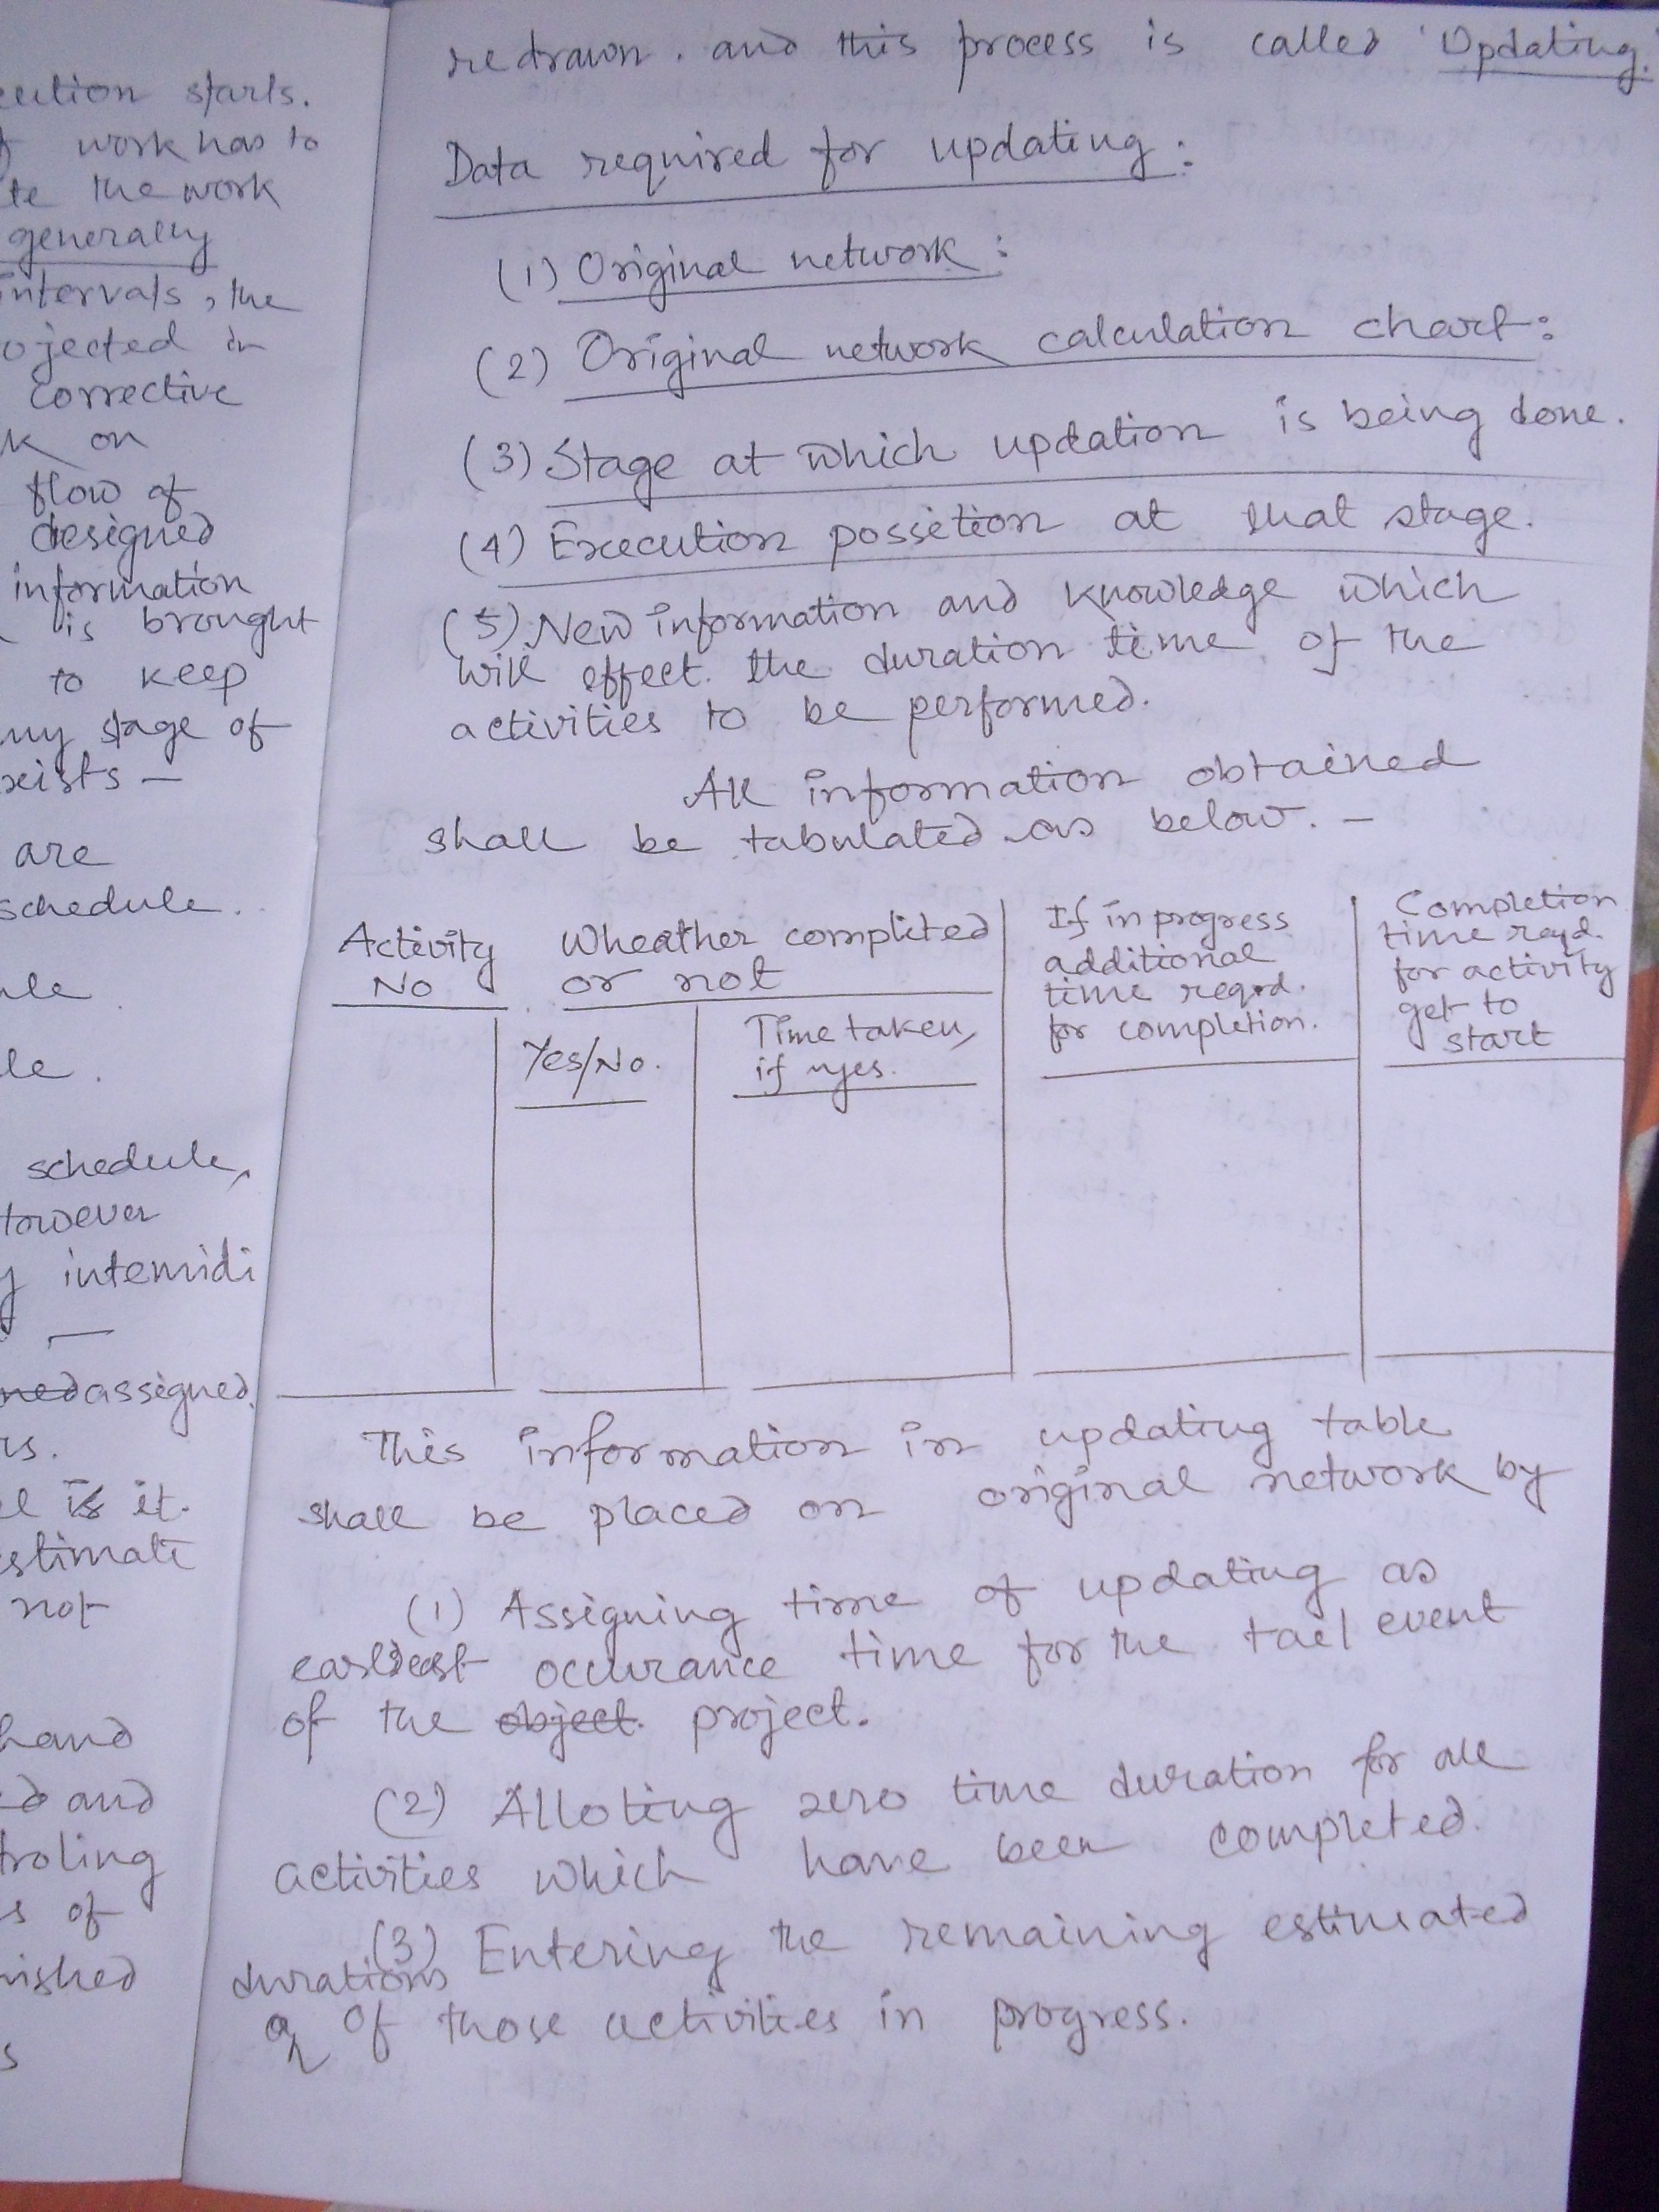 cution starts.
work has to
te the work
generally
intervals, the
ojected in
corrective
k on
flow of
designed
information
is brought
to keep
any stage of
xists —
are
schedule.
ule.
le.
schedule,
However
intemidi
—
assigned.
rs.
it.
estimate
not
hand
and
troling
s of
nished
s
redrawn. and this process is called 'Updating.'
Data required for updating:
(1) Original network:
(2) Original network calculation chart:
(3) Stage at which updation is being done.
(4) Execution possetion at that stage.
(5) New information and knowledge which
will effect. the duration time of the
activities to be performed.
All information obtained
shall be tabulated as below. —
Activity
No
Wheather completed
or not
Yes/No.
Time taken,
if yes.
If in progress
additional
time reqrd.
for completion.
Completion
time reqd.
for activity
get to
start
This information in updating table
shall be placed on original network by
(1) Assigning time of updating as
earliest occurance time for the tael event
of the object. project.
(2) Alloting zero time duration for all
activities which have been completed.
(3) Entering the remaining estimated
durations
of those activities in progress.